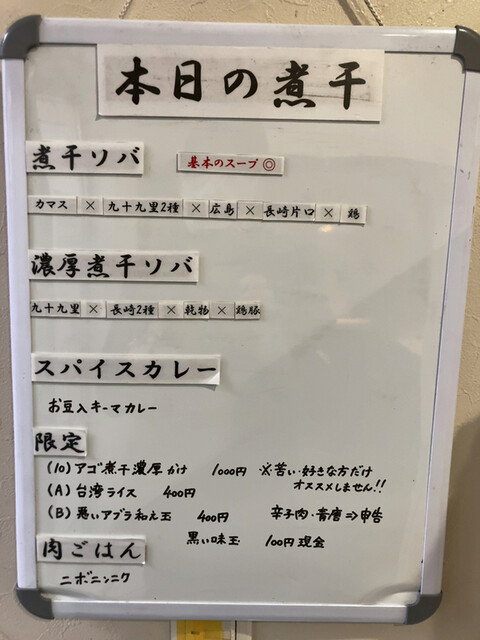 本日の煮干
煮干ソバ 基本のスープ◎
カマス × 九十九里2種 × 広島 × 長崎片口 × 鶏
濃厚煮干ソバ
九十九里 × 長崎2種 × 乾物 × 鶏豚
スパイスカレー
お豆入キーマカレー
限定
(10) アゴ煮干濃厚かけ 1000円 ※苦い・好きな方だけ
オススメしません!!
(A) 台湾ライス 400円
(B) 悪いアブラ和え玉 400円 辛子肉・青唐⇒申告
黒い味玉 100円 現金
肉ごはん
ニボニンニク